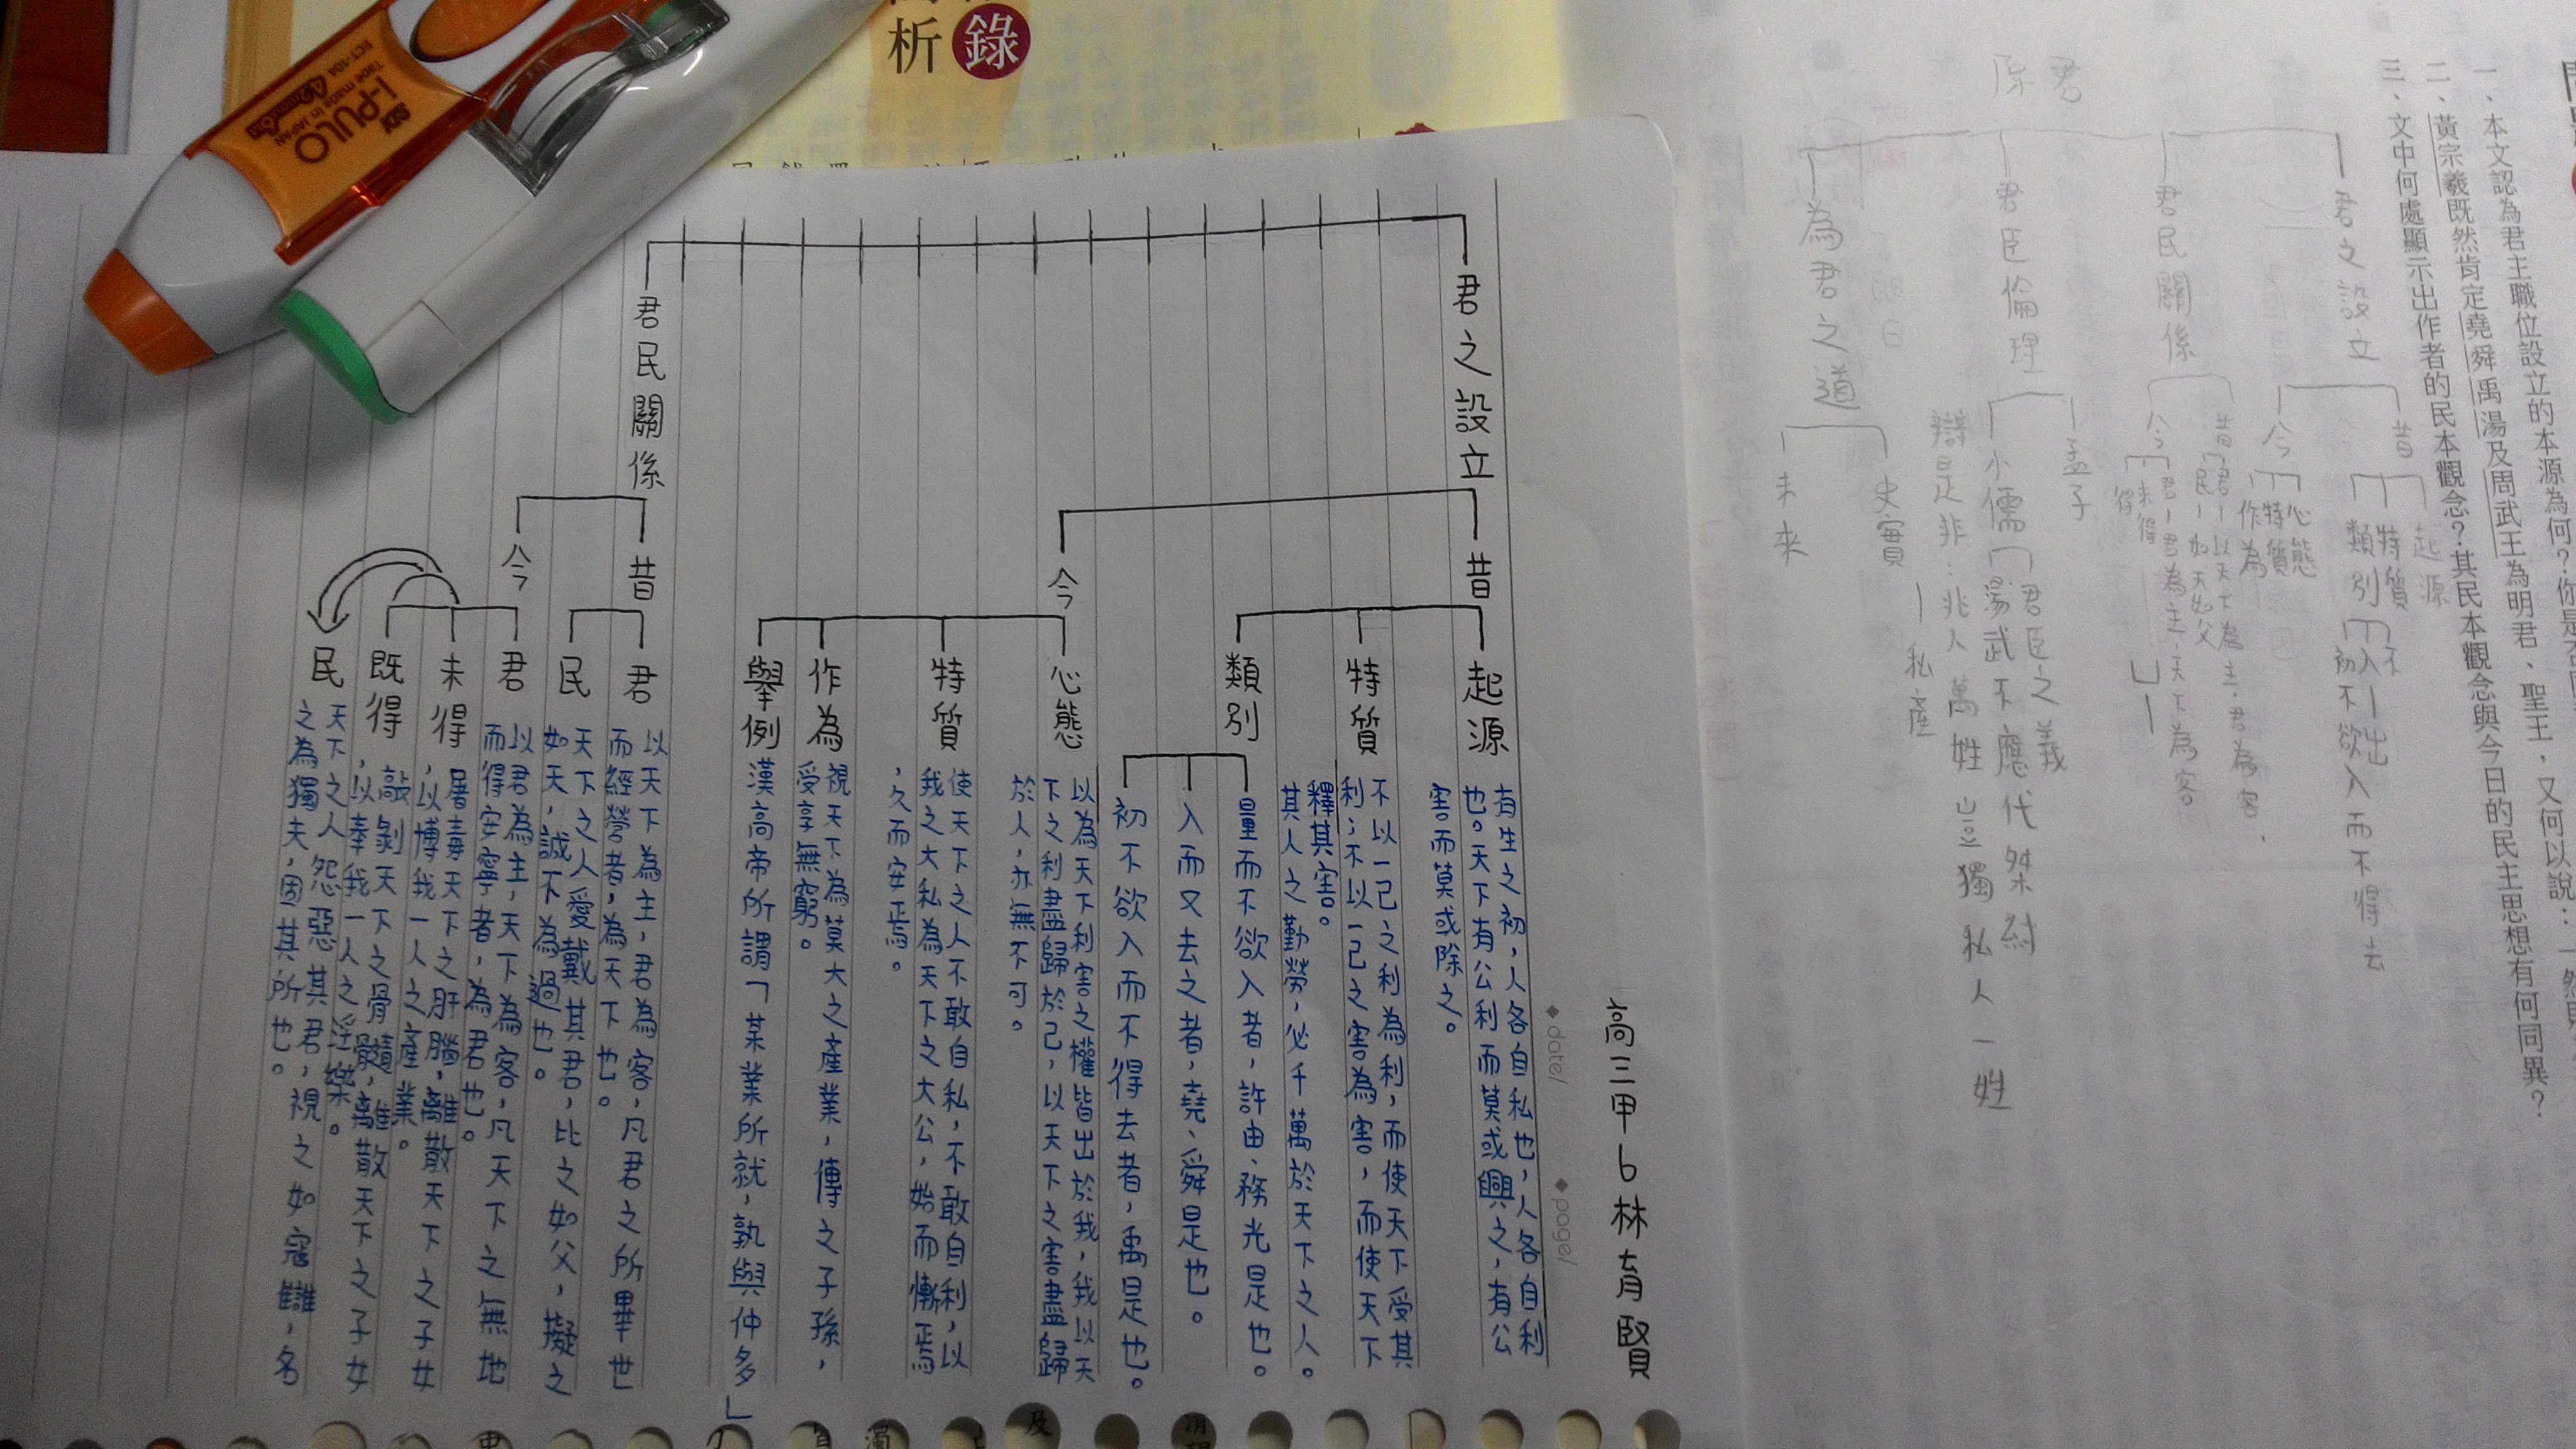 一、本文認為君主職位設立的本源為何？你是否
二、黃宗羲既然肯定堯舜禹湯及周武王為明君、聖王，又何以說：「然則
三、文中何處顯示出作者的民本觀念？其民本觀念與今日的民主思想有何同異？
原君
君之設立
昔
起源
特質
類別
不入
入—出
初不欲入而不得去
今
心態
特質
作為
君民關係
昔
君—以天下為主，君為客，
民—如天如父
今
君—君為主，天下為客
未得
得
君臣倫理
孟子
小儒
君臣之義
湯武不應代桀紂
辯是非：兆人萬姓 豈獨私人一姓
為君之道
史實
—私產
未來
析錄
SDI
i-PULO
Tape made in JAPAN
ECT-10A
高三甲6林育賢
◆date/
◆page/
君之設立
昔
起源
有生之初，人各自私也，人各自利
也。天下有公利而莫或興之，有公
害而莫或除之。
特質
不以一己之利為利，而使天下受其
利；不以一己之害為害，而使天下
釋其害。
其人之勤勞，必千萬於天下之人。
類別
量而不欲入者，許由、務光是也。
入而又去之者，堯、舜是也。
初不欲入而不得去者，禹是也。
今
心態
以為天下利害之權皆出於我，我以天
下之利盡歸於己，以天下之害盡歸
於人，亦無不可。
特質
使天下之人不敢自私，不敢自利，以
我之大私為天下之大公，始而慚焉
，久而安焉。
作為
視天下為莫大之產業，傳之子孫，
受享無窮。
舉例
漢高帝所謂「某業所就，孰與仲多」
君民關係
昔
君
以天下為主，君為客，凡君之所畢世
而經營者，為天下也。
民
天下之人愛戴其君，比之如父，擬之
如天，誠不為過也。
今
君
以君為主，天下為客，凡天下之無地
而得安寧者，為君也。
未得
屠毒天下之肝腦，離散天下之子女
，以博我一人之產業。
既得
敲剝天下之骨髓，離散天下之子女
，以奉我一人之淫樂。
民
天下之人怨惡其君，視之如寇讎，名
之為獨夫，固其所也。